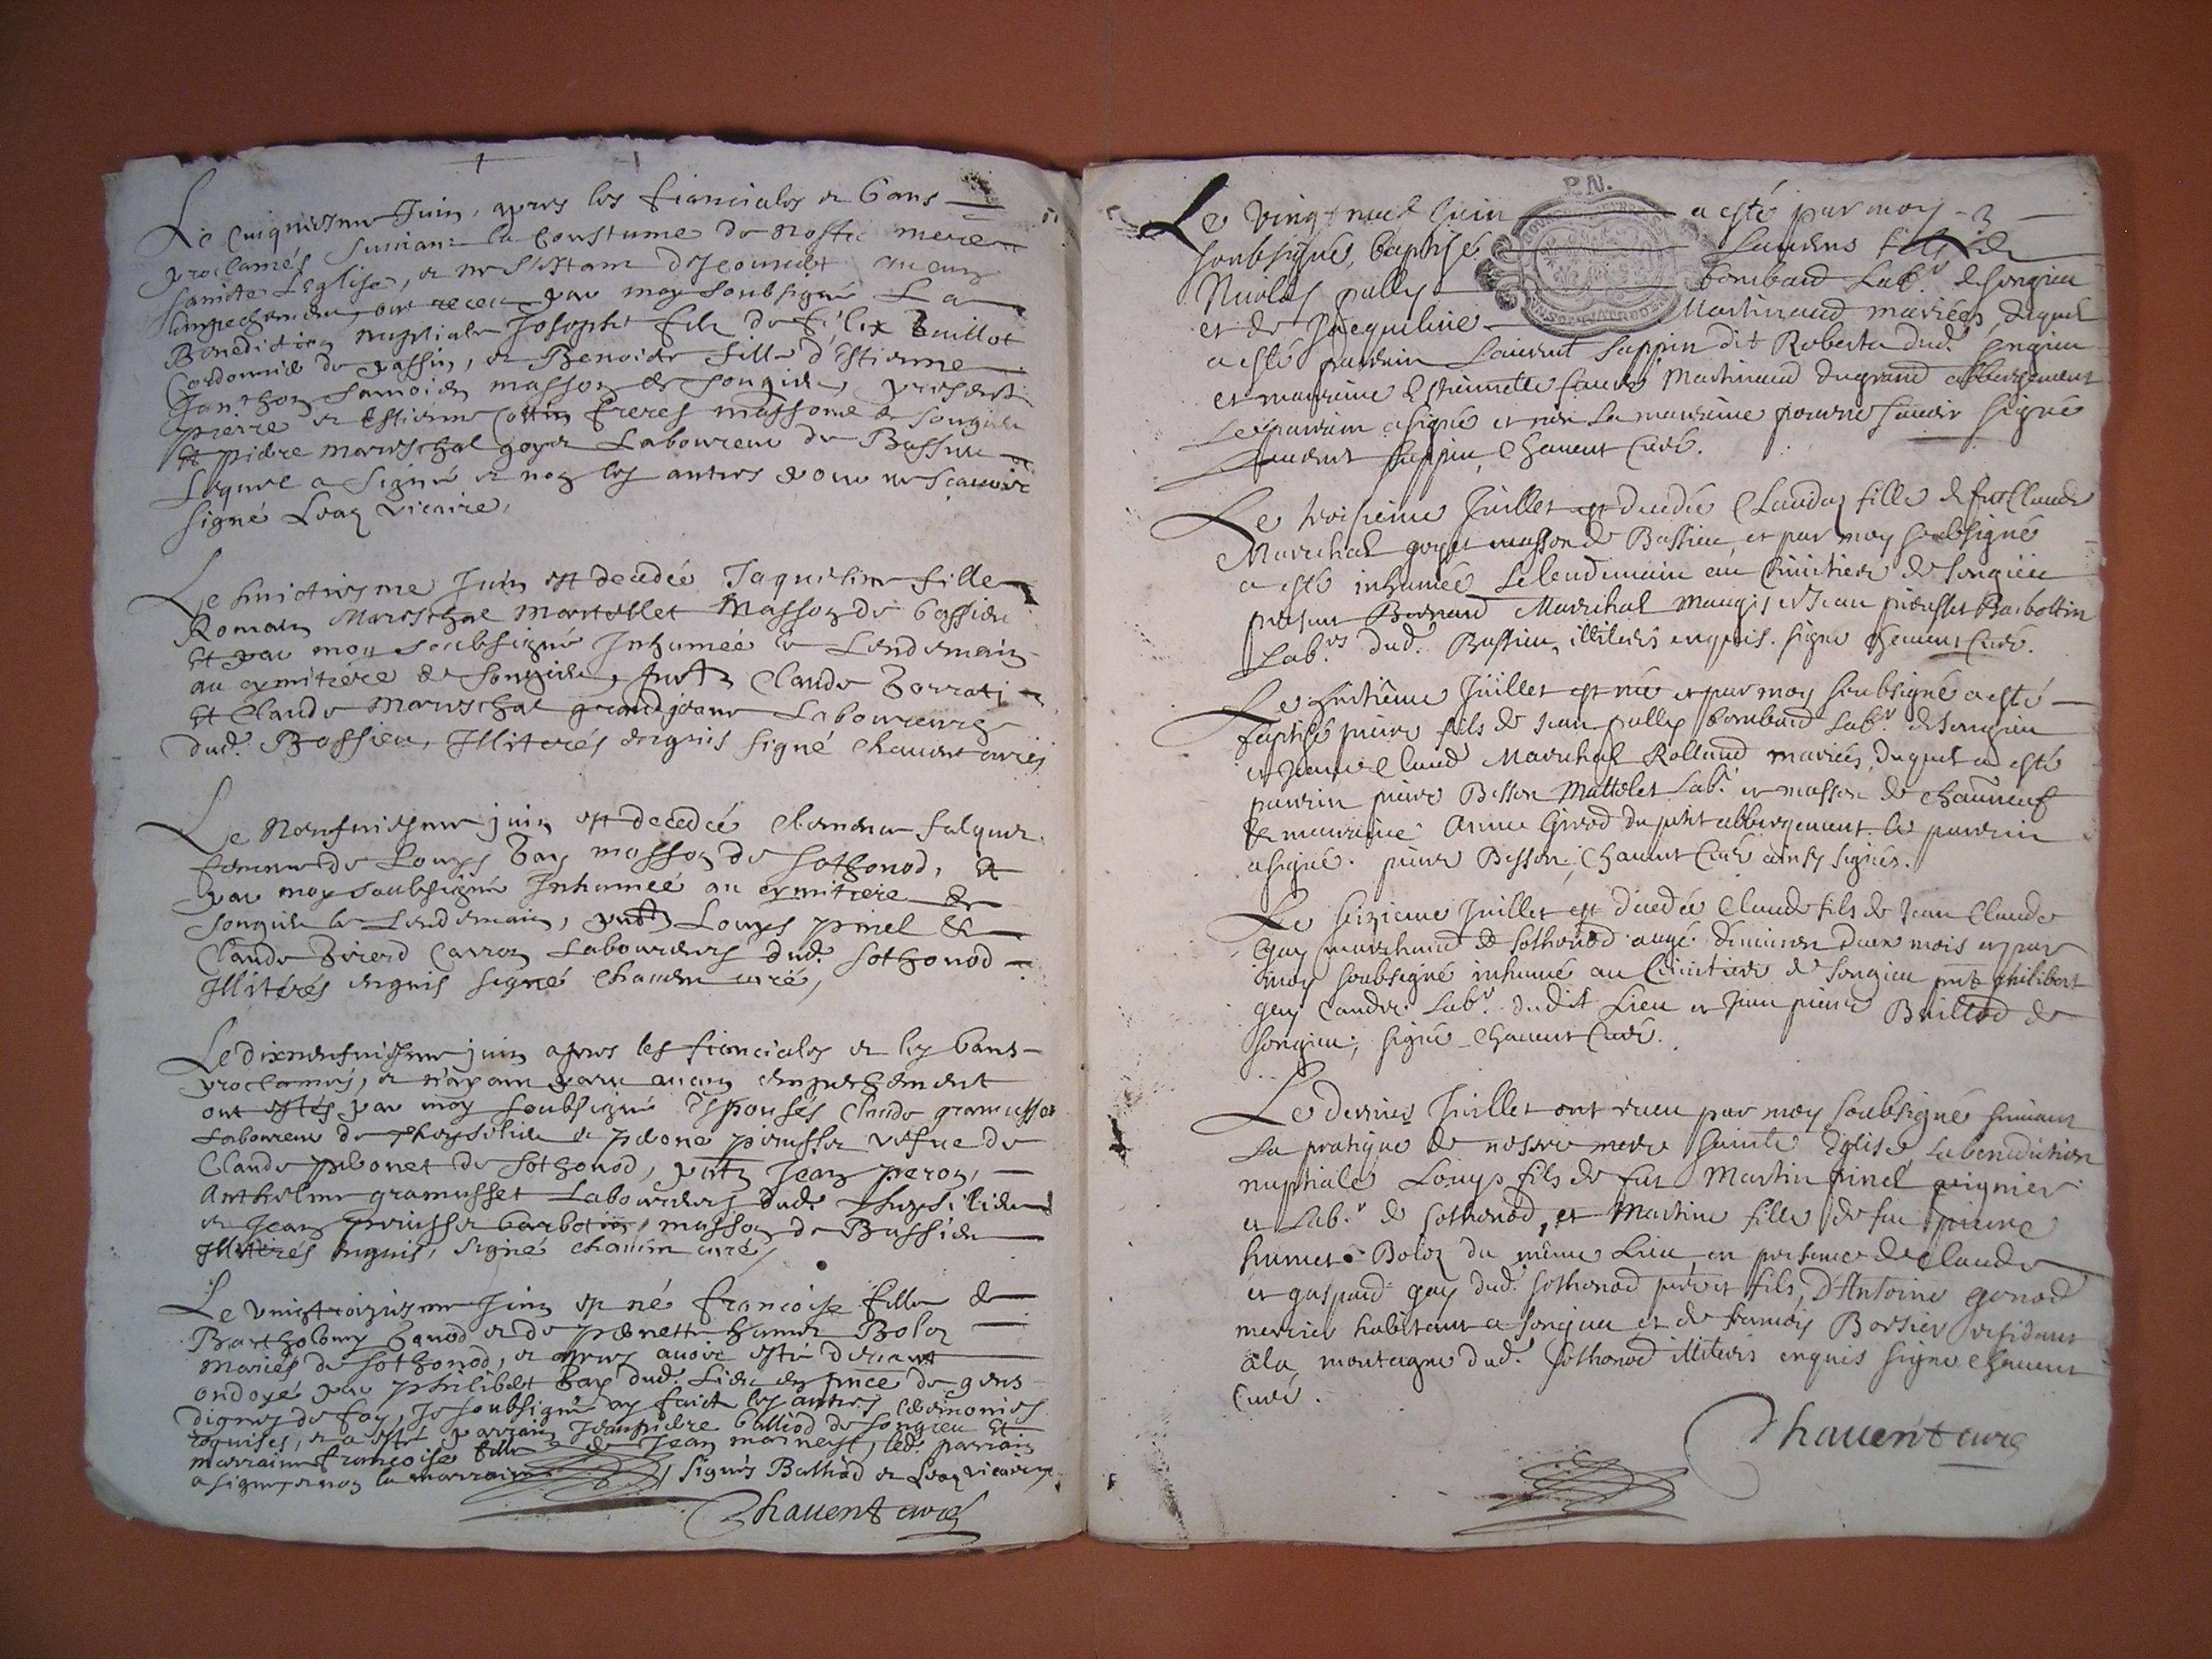 Le cinquiesme Juin, apres les fianciales et bans
proclamés suivant la coustume de nostre mere
saincte Leglise, et ne s'estant descouvert aucun
empechement, ont receu par moy soubsigné La
Benediction nuptiale Joseph fils de félix Buillot
Cordonnie de passin, et Benoiste fille d'Estienne
masson de songieu, presents
pierre et Estienne Cottin freres massons de songieu
Et pierre mareschal goyet Laboureur de Bassieu
Lequel a signé et non les autres pour ne scavoir
signé vicaire,
Le huictiesme Juin est decedée Jaqueline fille
Romain Mareschal Martellet Masson de bassieu
Et par moy soubsigné Inhumée le Lendemain
au cymitiere de songieu, pnts Claude
Et Claude Mareschal grandjeane Laboureurs
dud. Bassieu, Illiterés enquis signé Chauent curé,
Le neufuiesme juin est decedée falquet
femme de Louys Gay masson de sothonod, et
par moy soubsigné Inhumeé au cymitiere de
songieu le Lendemain, pnts Louys pinel &
Claude Carron Laboureurs dud. sothonod
Illiterés enquis signé Chauent curé,
Le dixneufuiesme juin apres les fianciales et les bans
proclamés, et n'ayant paru aucun empechement
ont estés par moy soubsigné Espousés Claude gramusset
Laboureur de et perone pirusset vefue de
Claude de sothonod, pnts Jean peron,
Anthelme gramusset Laboureurs dud.
et Jean pirusset barbotin, masson de Bassieu
Illiterés enquis, signé chauent curé,
Le vingtroiziesme Juin est né francoise fille de
Barthelemy Genod et de pernette humet Bolon
Mariés de sothonod, et apres auoir esté deuant
ondoyé par philibert Gay dud. Lieu en pnce de gens
dignes de foy, Je soubsigné ay faict les autres ceremonies
requises, et a esté parrain Jeanpierre balliod de songieu Et
marraine francoise fille de Jean, led. parrain
a signé, et non la marraine, signés Balliod et vicaire,
Chauent curé
Le vingt neuf Juin a esté par moy 3
soubsigné, baptisé Laurens fils de
Nicolas pally bombard Lab.r de songieu
et de Jacqueline Martinand mariées, duquel
a esté parrain Laurent Lappin dit Roberte dud. songieu
et marraine Estiennette Martinand du grand abbergement
Le parrain a signé et non la marraine pour ne savoir signé
Laurent Lappin, Chauent Curé.
Le troisieme Juillet est decedée Claudaz fille de feu Claude
Marechal goyet masson de Bassieu, et par moy soubsigné
a esté inhumée Le lendemain au Cimitiere de songieu
present Bernard Marechal Maugis et Jean pirusset Barbottin
Lab.rs dud. Bassieu, illiterés enquis. signé Chauent Curé.
Le huitième Juillet est née et par moy soubsigné a esté
baptisé pierre fils de Jean pally bombard Lab.r de songieu
et Jeanne Claude Marechal Rolland mariées, duquel a esté
parrain pierre Besson Mattelet Lab.r et masson de
& marraine Anne Girod du petit abbergement. le parrain
a signé. pierre Besson, Chauent Curé ainsy signés.
Le seizieme Juillet est decedée Claude fils de Jean Claude
Gay marchand de sothonod aagé d'environ deux mois et par
moy soubsigné inhumé au Cimitiere de songieu pnts philibert
gay Lab.r dudit Lieu et Jean pierre Baillod de
songieu, signé Chauent Curé.
Le dernier Juillet ont receu par moy soubsigné suivant
La pratique de nostre mere sainte Eglise, La benediction
nuptiale Louys fils de feu Martin pinel peignier
et Lab.r de sothonod, et Martine fille de feu pierre
humet Bolon du même Lieu en presence de Claude
et gaspard gay dud. sothonod pere et fils, D'Antoine genod
mercier habitant a songieu et de francois Borsier residant
a la montagne dud. sothonod illiterés enquis signé Chauent
Curé.
Chauent curé